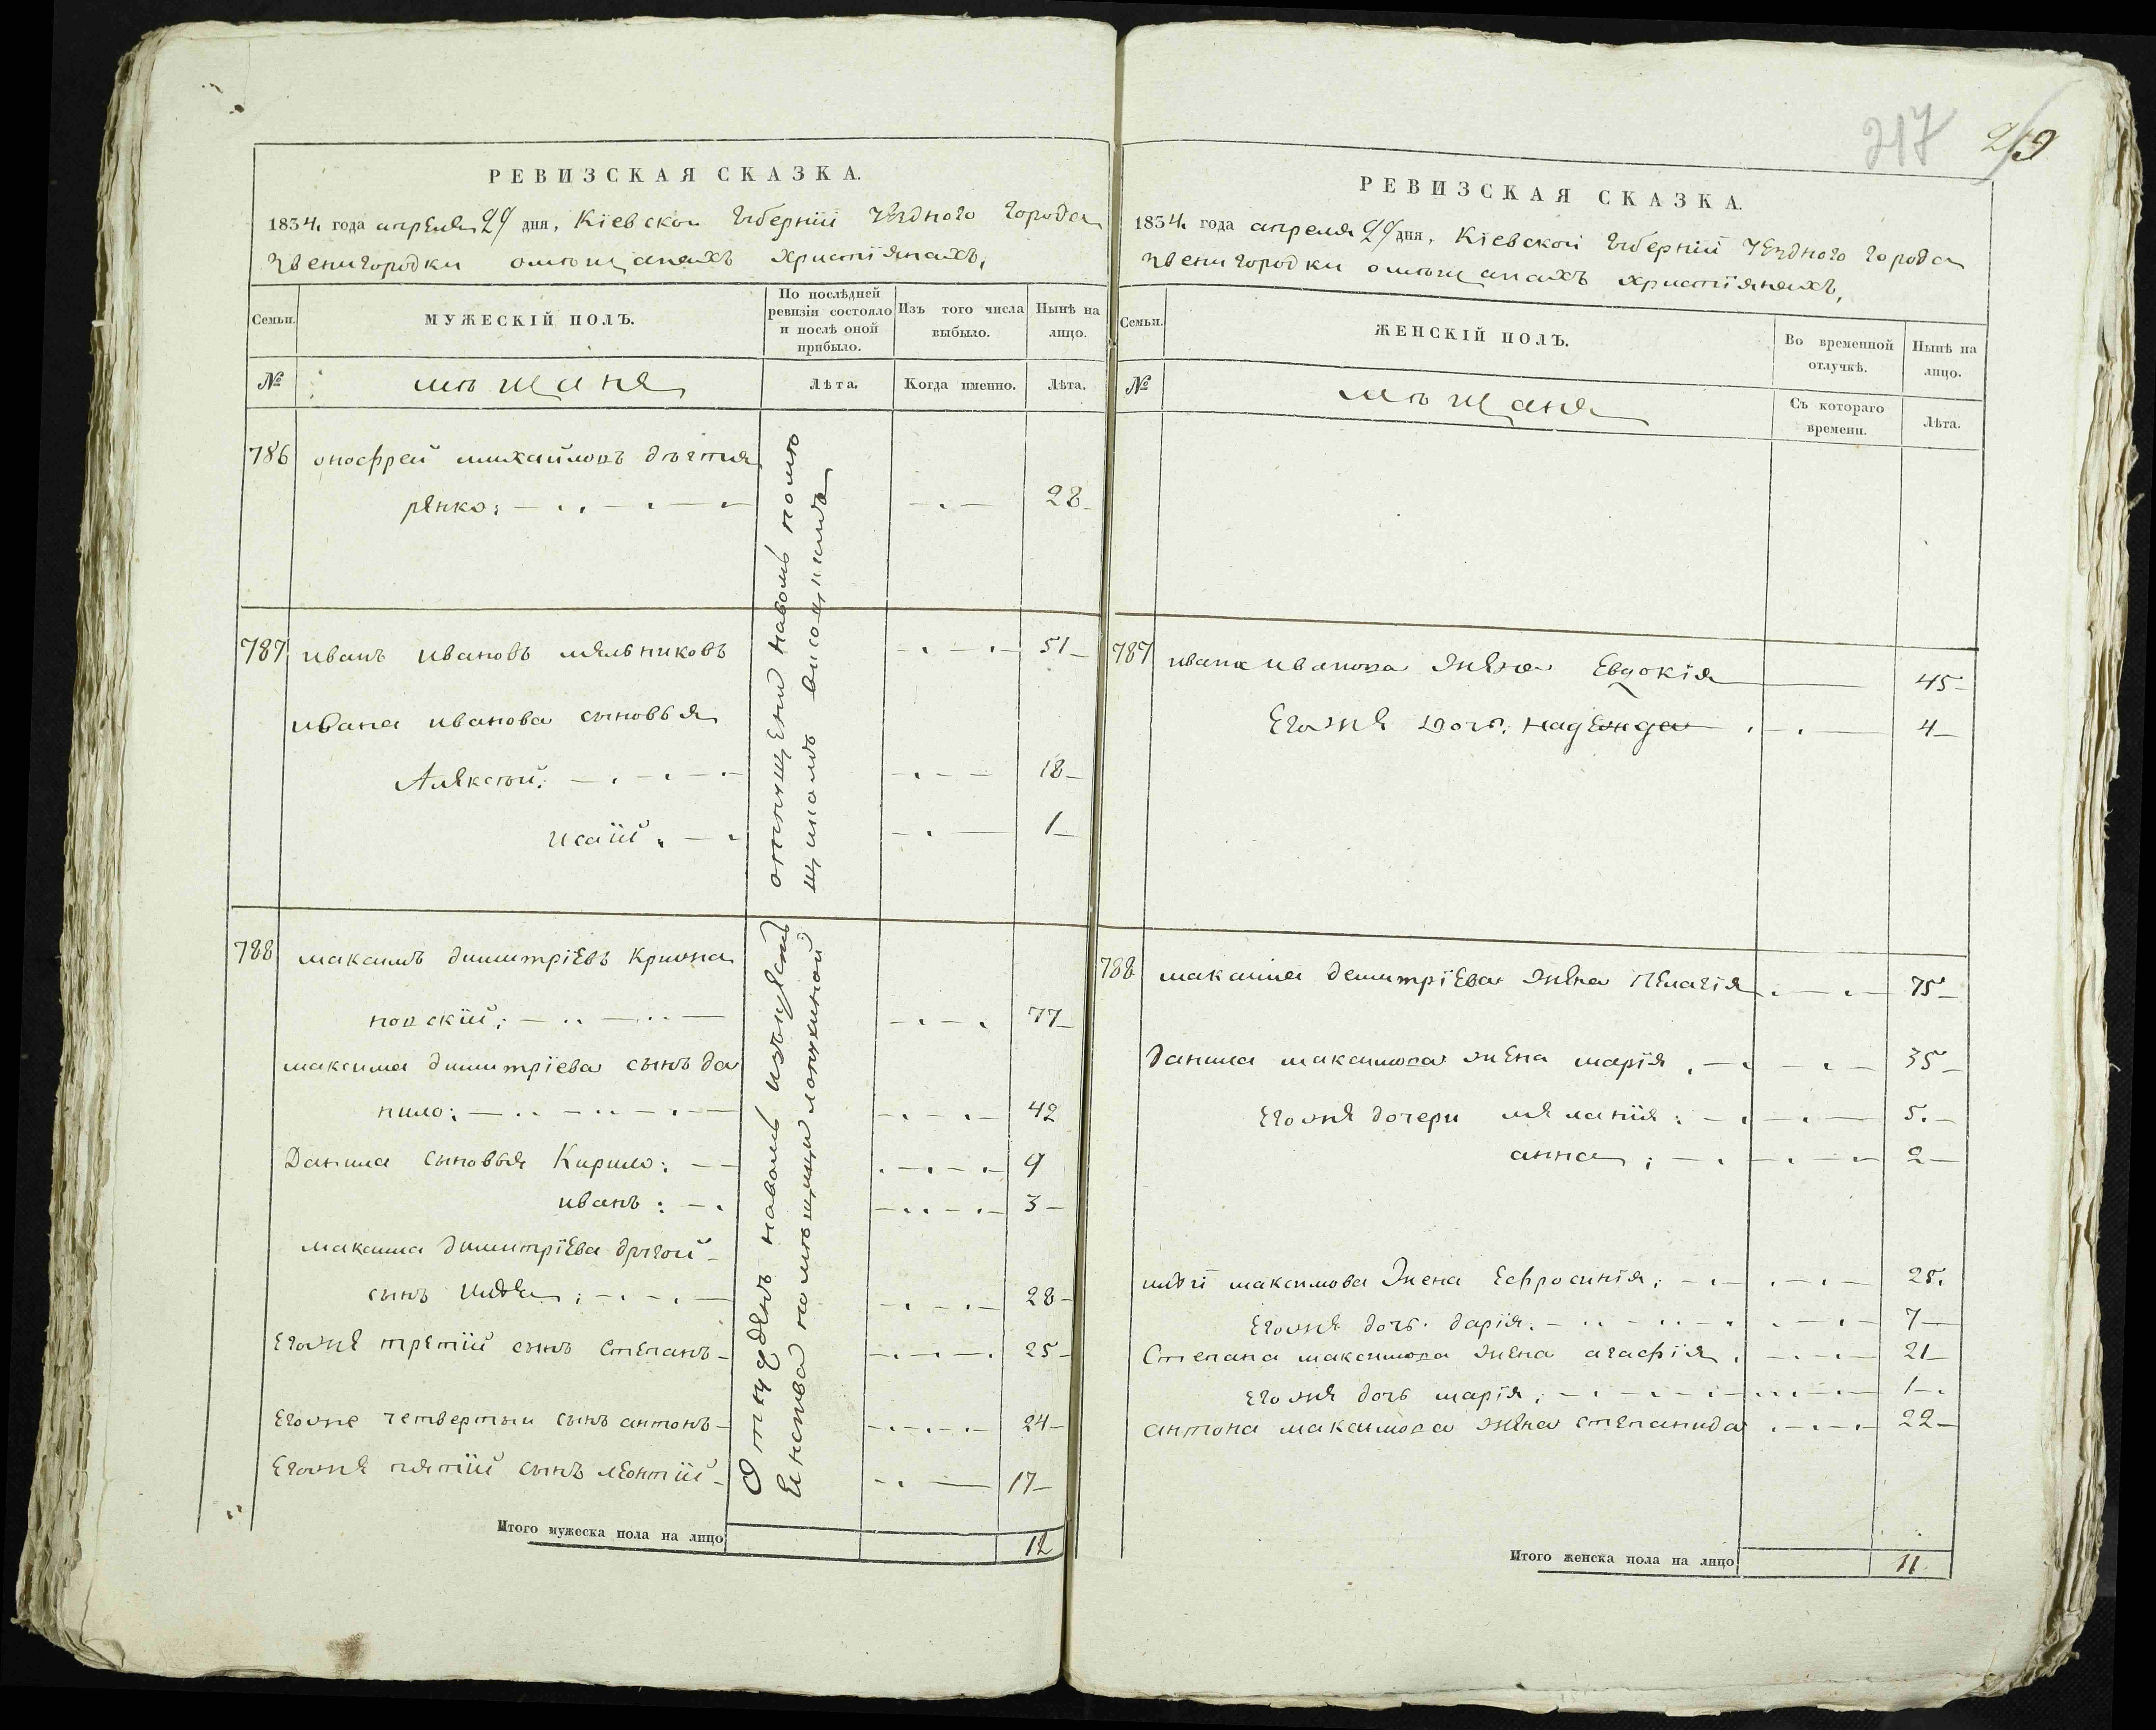 217 219
РЕВИЗСКАЯ СКАЗКА.
1834. года апреля 29 дня, Кіевской губерніи уездного города
звенигородки омѣщанахъ христіянахъ,
Семьи. МУЖЕСКІЙ ПОЛЪ. По послѣдней ревизіи состояло и послѣ оной прибыло. Изъ того числа выбыло. Нынѣ на лицо.
№ мѣщаня Лѣта. Когда именно. Лѣта.
786 онофрей михайловъ
рянко: 28
787 иванъ ивановъ мяльниковъ 51
ивана иванова сыновья
Аляксѣй: 18
исаій 1
788 максимъ димитріевъ
новскій; 77
максима димитріева сынъ да
нило: 42
Данила сыновья Кирило: 9
иванъ: 3
максима димитріева другой
сынъ илья; 28
Егожя третій сынъ степанъ 25
Егоже четвертыи сынъ антонъ 24
Егожя пятій сынъ леонтій 17
отпущени наволь помѣ
щикомъ
наволь
Енства помѣщици
Итого мужеска пола на лицо 12
РЕВИЗСКАЯ СКАЗКА.
1834. года апреля 29 дня, Кіевской губерніи уездного города
звенигородки омѣщанахъ христіянахъ,
Семьи. ЖЕНСКІЙ ПОЛЪ. Во временной отлучкѣ. Нынѣ на лицо.
№ мѣщаня Съ котораго времени. Лѣта.
787 ивана иванова жяна Евдокія 45
Егожя дочь: надежда 4
788 максима демитріева жяна Пелагія 75
данила максимова жена марія, 35
Егожя дочери мяланія: 5.
анна; 2
иліи максимова жена Ефросинія; 25.
Егожя дочь. дарія. 7
Степана максимова жяна агафія, 21
Егожя дочь марія; 1
антона максимова жяна степанида 22
Итого женска пола на лицо 11.